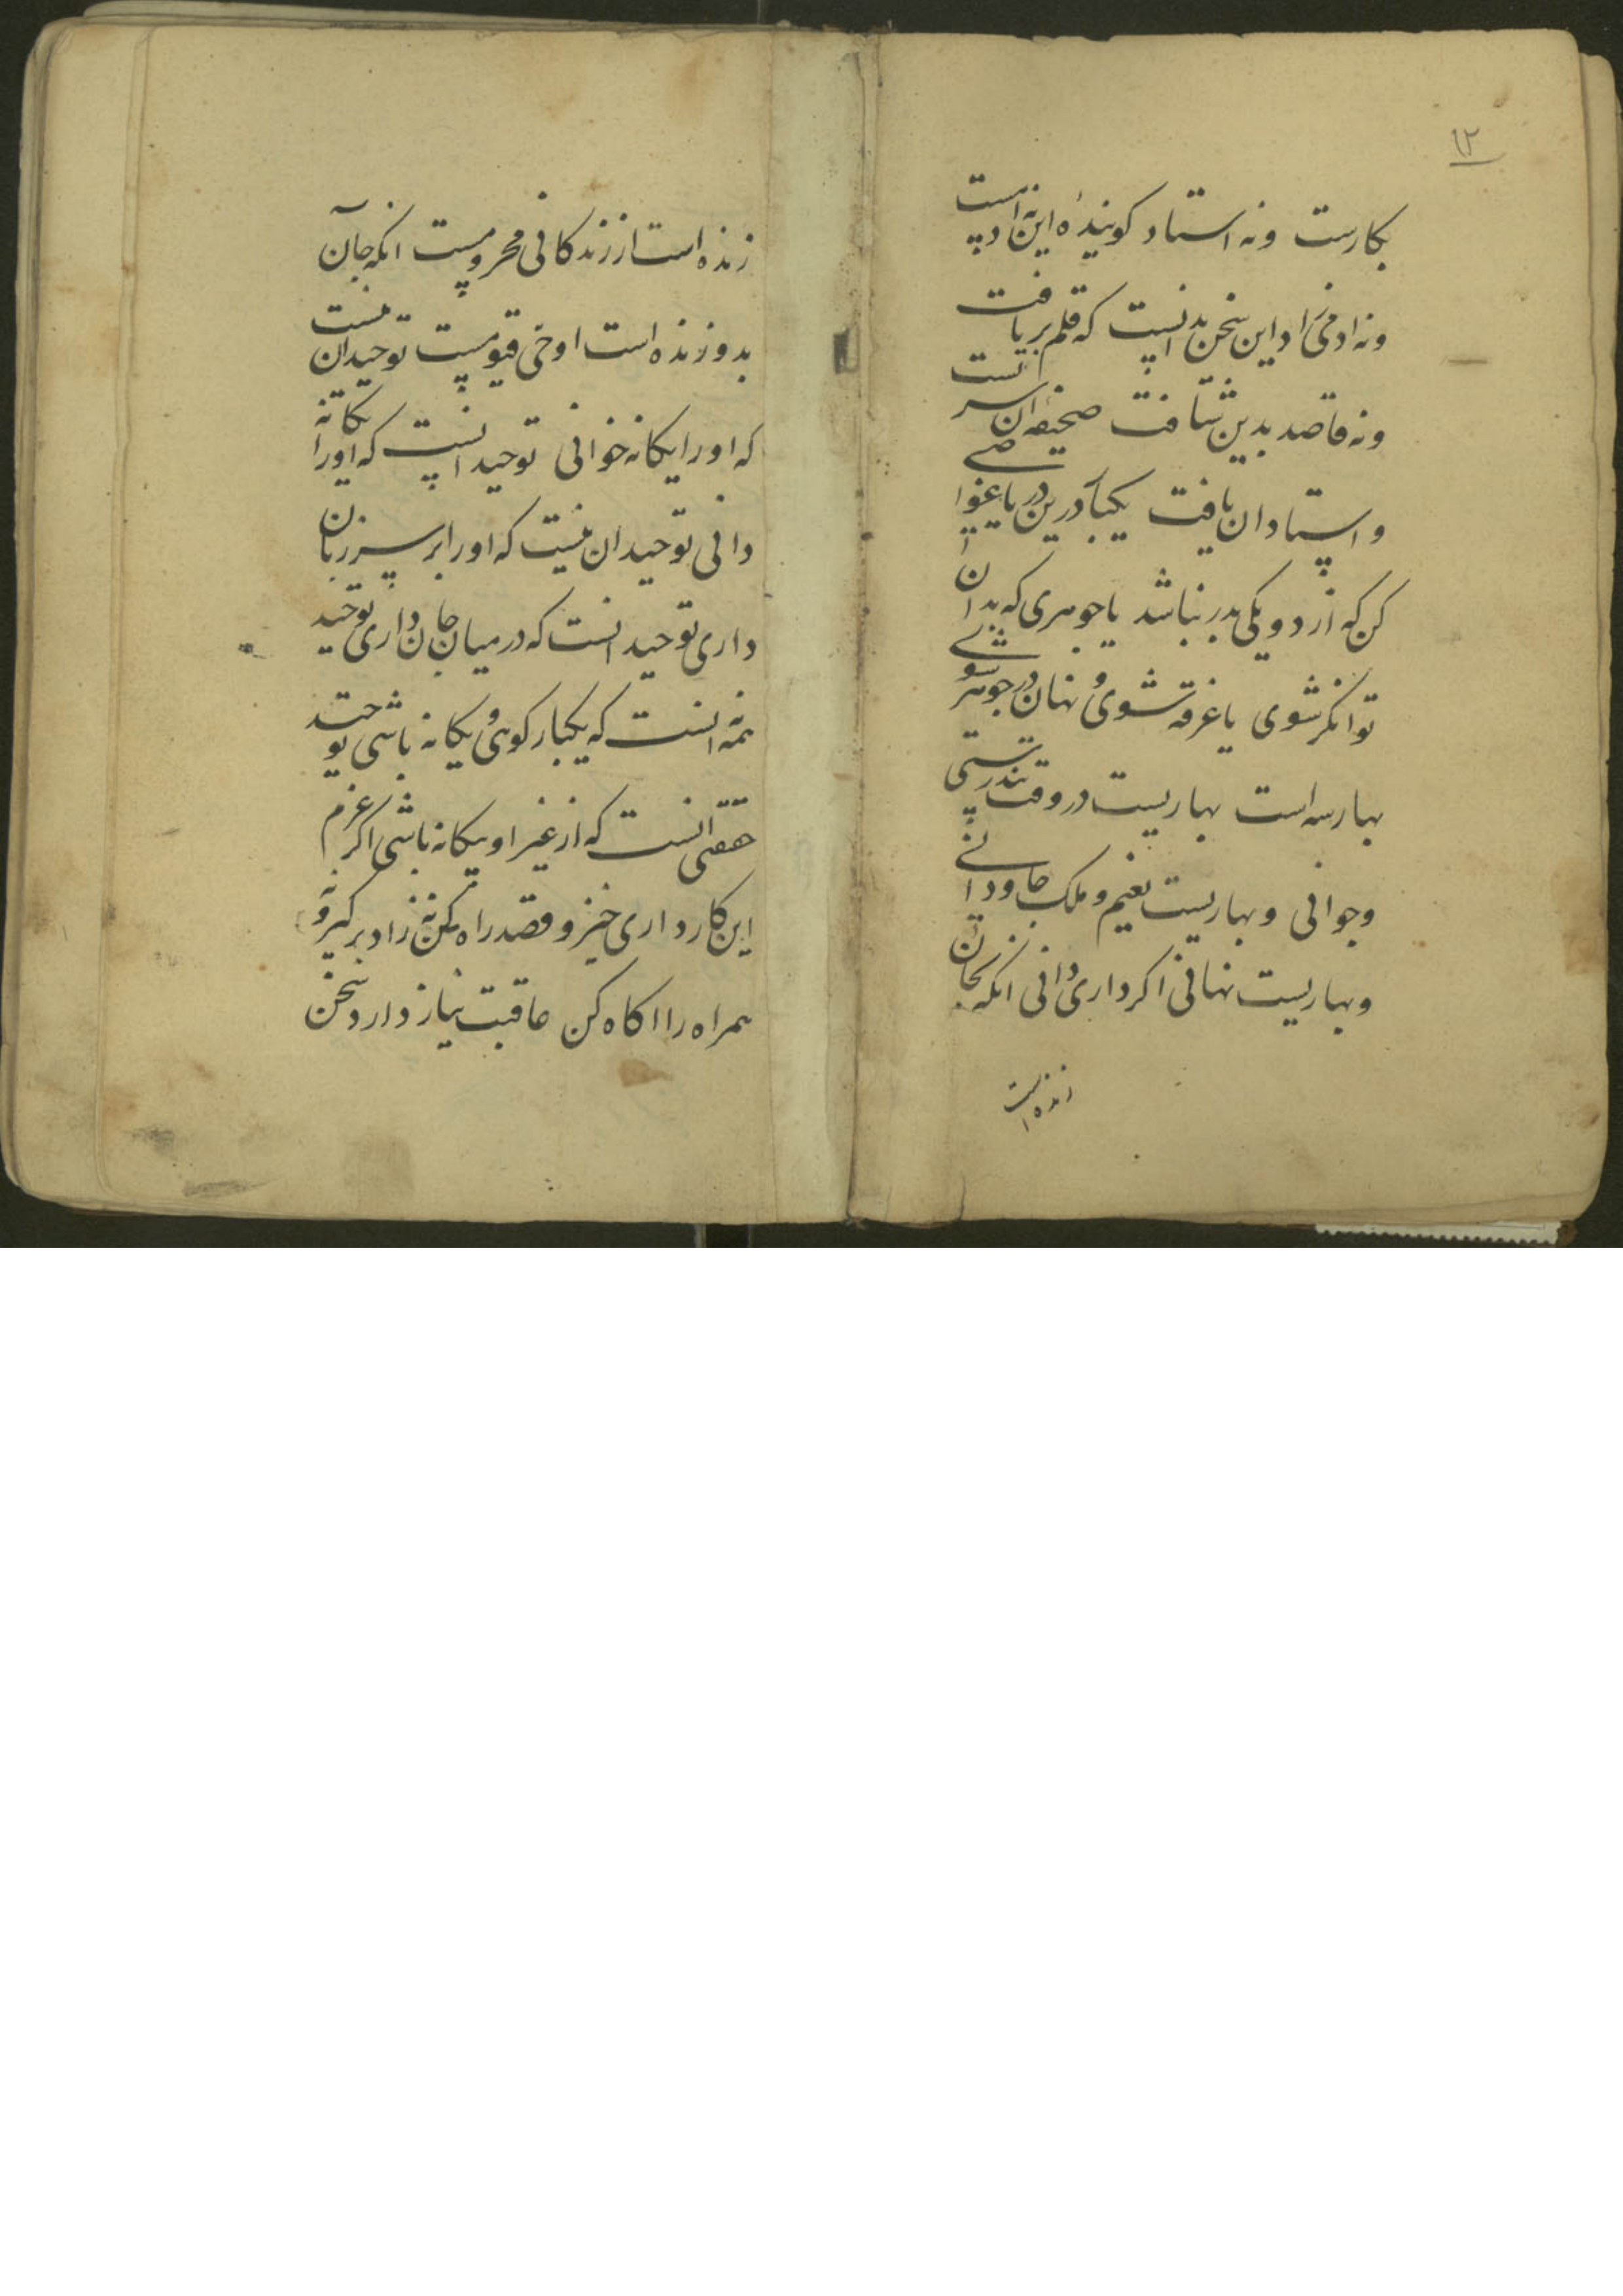 ۱۲
بکارست ونه استاد کویندهٔ این نه ادیب است
ونه ادمی زاد این سخن بدانست که قلم بر یافت
ونه قاصد بدین شتافت صحیفه ان سر تست
واستاد ان یافت یکبار درین دریا غواصی
کن که از دو یکی بدر نباشد یا جوهری که بدان
توانکر شوی یا غرقه شوی و نهان در جوهر شوی
بهار سه است بهاریست در وقت تندرستی
وجوانی وبهاریست نعیم وملک جاودانی
وبهاریست نهانی اکر داری و دانی انکه بجان
زنده است
زنده است از زندکانی محرومست انکه جان
بدو زنده است او حی قیومست توحید ان نیست
که اورا یکانه خوانی توحید انست که اورا یکانه
دانی توحید ان نیست که اورا بر سر زبان
داری توحید انست که در میان جان داری توحید
نه همه انست که یکبار کوئی و یکانه باشی توحید
حقیقی انست که از غیر او بیکانه باشی اکر عزم
این کار داری خیز و قصد راه کن نه زاد برکیر ونه
همراه را اکاه کن عاقبت نیاز دارد سخن